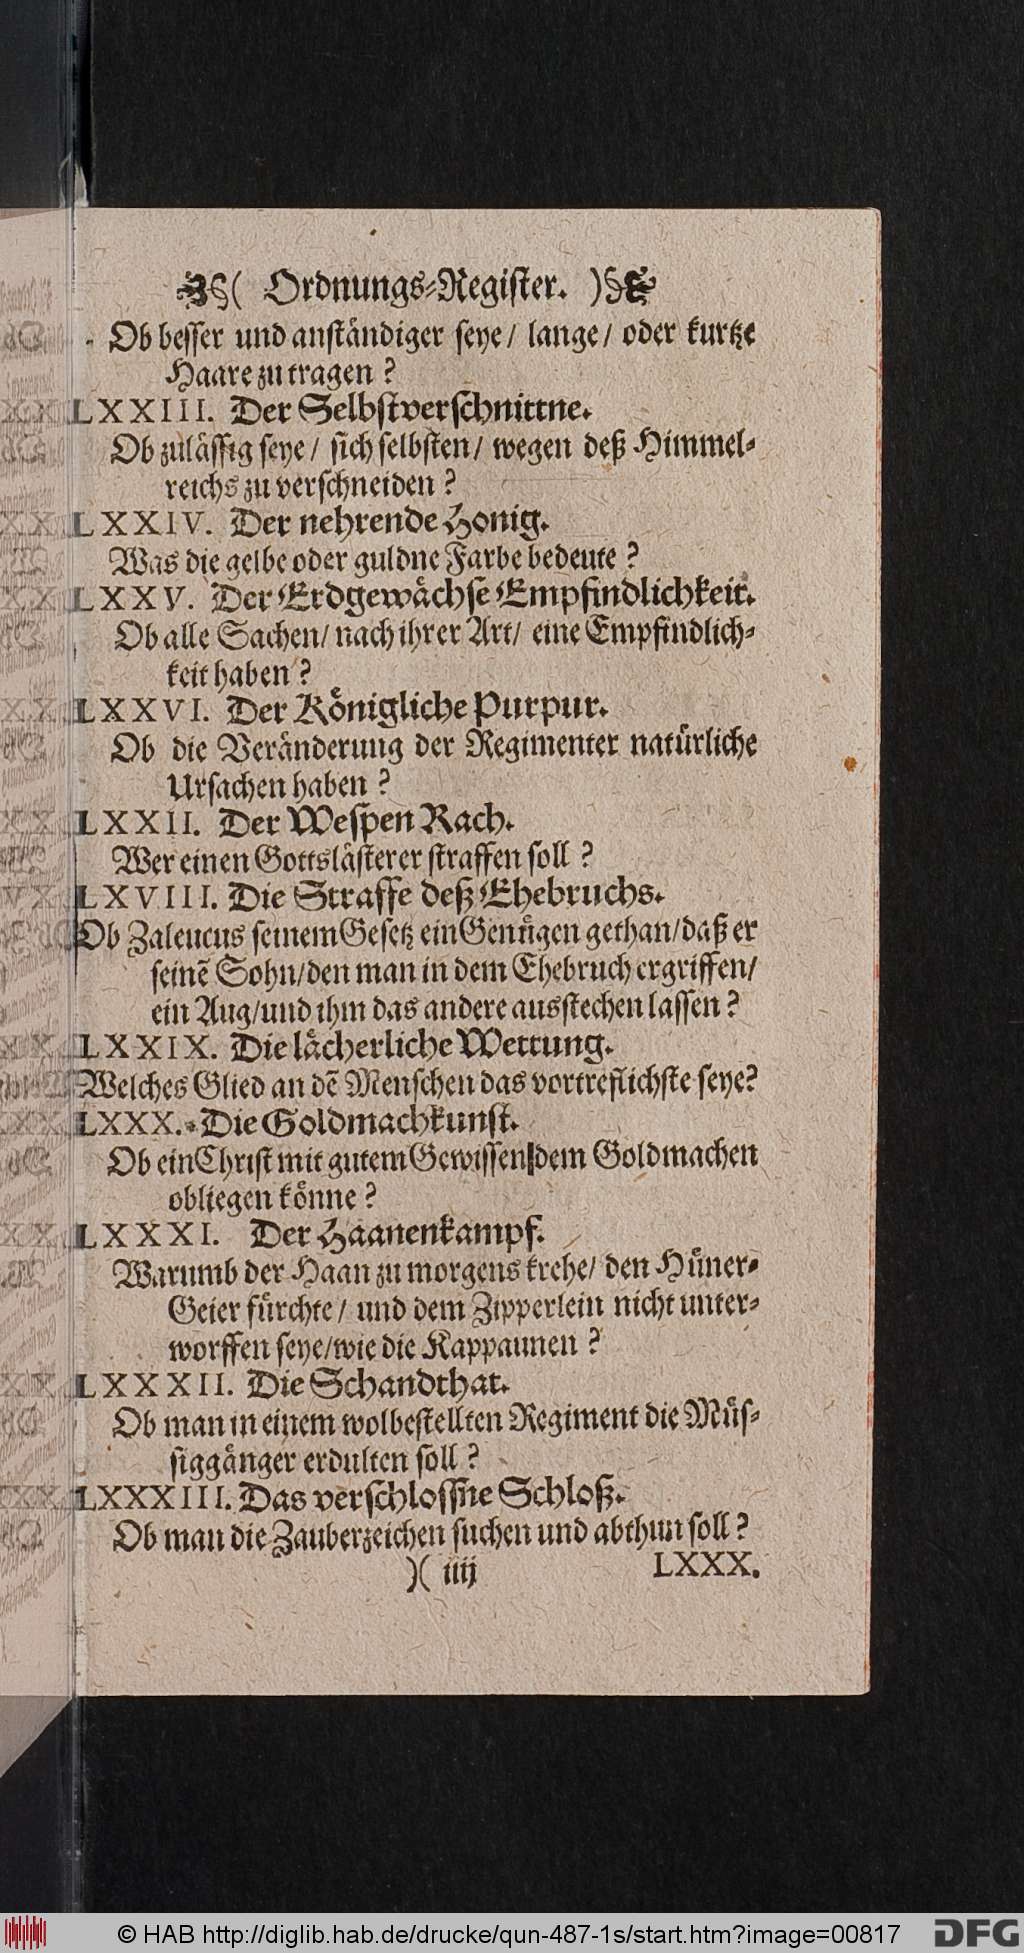 ( Ordnungs-Register. )
Ob besser und anständiger seye/ lange/ oder kurtze
Haare zu tragen?
LXXIII. Der Selbstverschnittne.
Ob zulässig seye/ sich selbsten/ wegen deß Himmel-
reichs zu verschneiden?
LXXIV. Der nehrende Honig.
Was die gelbe oder guldne Farbe bedeute?
LXXV. Der Erdgewächse Empfindlichkeit.
Ob alle Sachen/ nach ihrer Art/ eine Empfindlich-
keit haben?
LXXVI. Der Königliche Purpur.
Ob die Veränderung der Regimenter natürliche
Ursachen haben?
LXXII. Der Wespen Rach.
Wer einen Gottslästerer straffen soll?
LXVIII. Die Straffe deß Ehebruchs.
Ob Zaleucus seinem Gesetz ein Genügen gethan/ daß er
seinē Sohn/ den man in dem Ehebruch ergriffen/
ein Aug/ und ihm das andere ausstechen lassen?
LXXIX. Die lächerliche Wettung.
Welches Glied an dē Menschen das vortreflichste seye?
LXXX. Die Goldmachkunst.
Ob ein Christ mit gutem Gewissen dem Goldmachen
obliegen könne?
LXXXI. Der Haanenkampf.
Warumb der Haan zu morgens krehe/ den Hüner-
Geier fürchte/ und dem Zipperlein nicht unter-
worffen seye/ wie die Kappaunen?
LXXXII. Die Schandthat.
Ob man in einem wolbestellten Regiment die Müs-
siggänger erdulten soll?
LXXXIII. Das verschlossne Schloß.
Ob man die Zauberzeichen suchen und abthun soll?
)( iiij LXXX.
© HAB http://diglib.hab.de/drucke/qun-487-1s/start.htm?image=00817
DFG